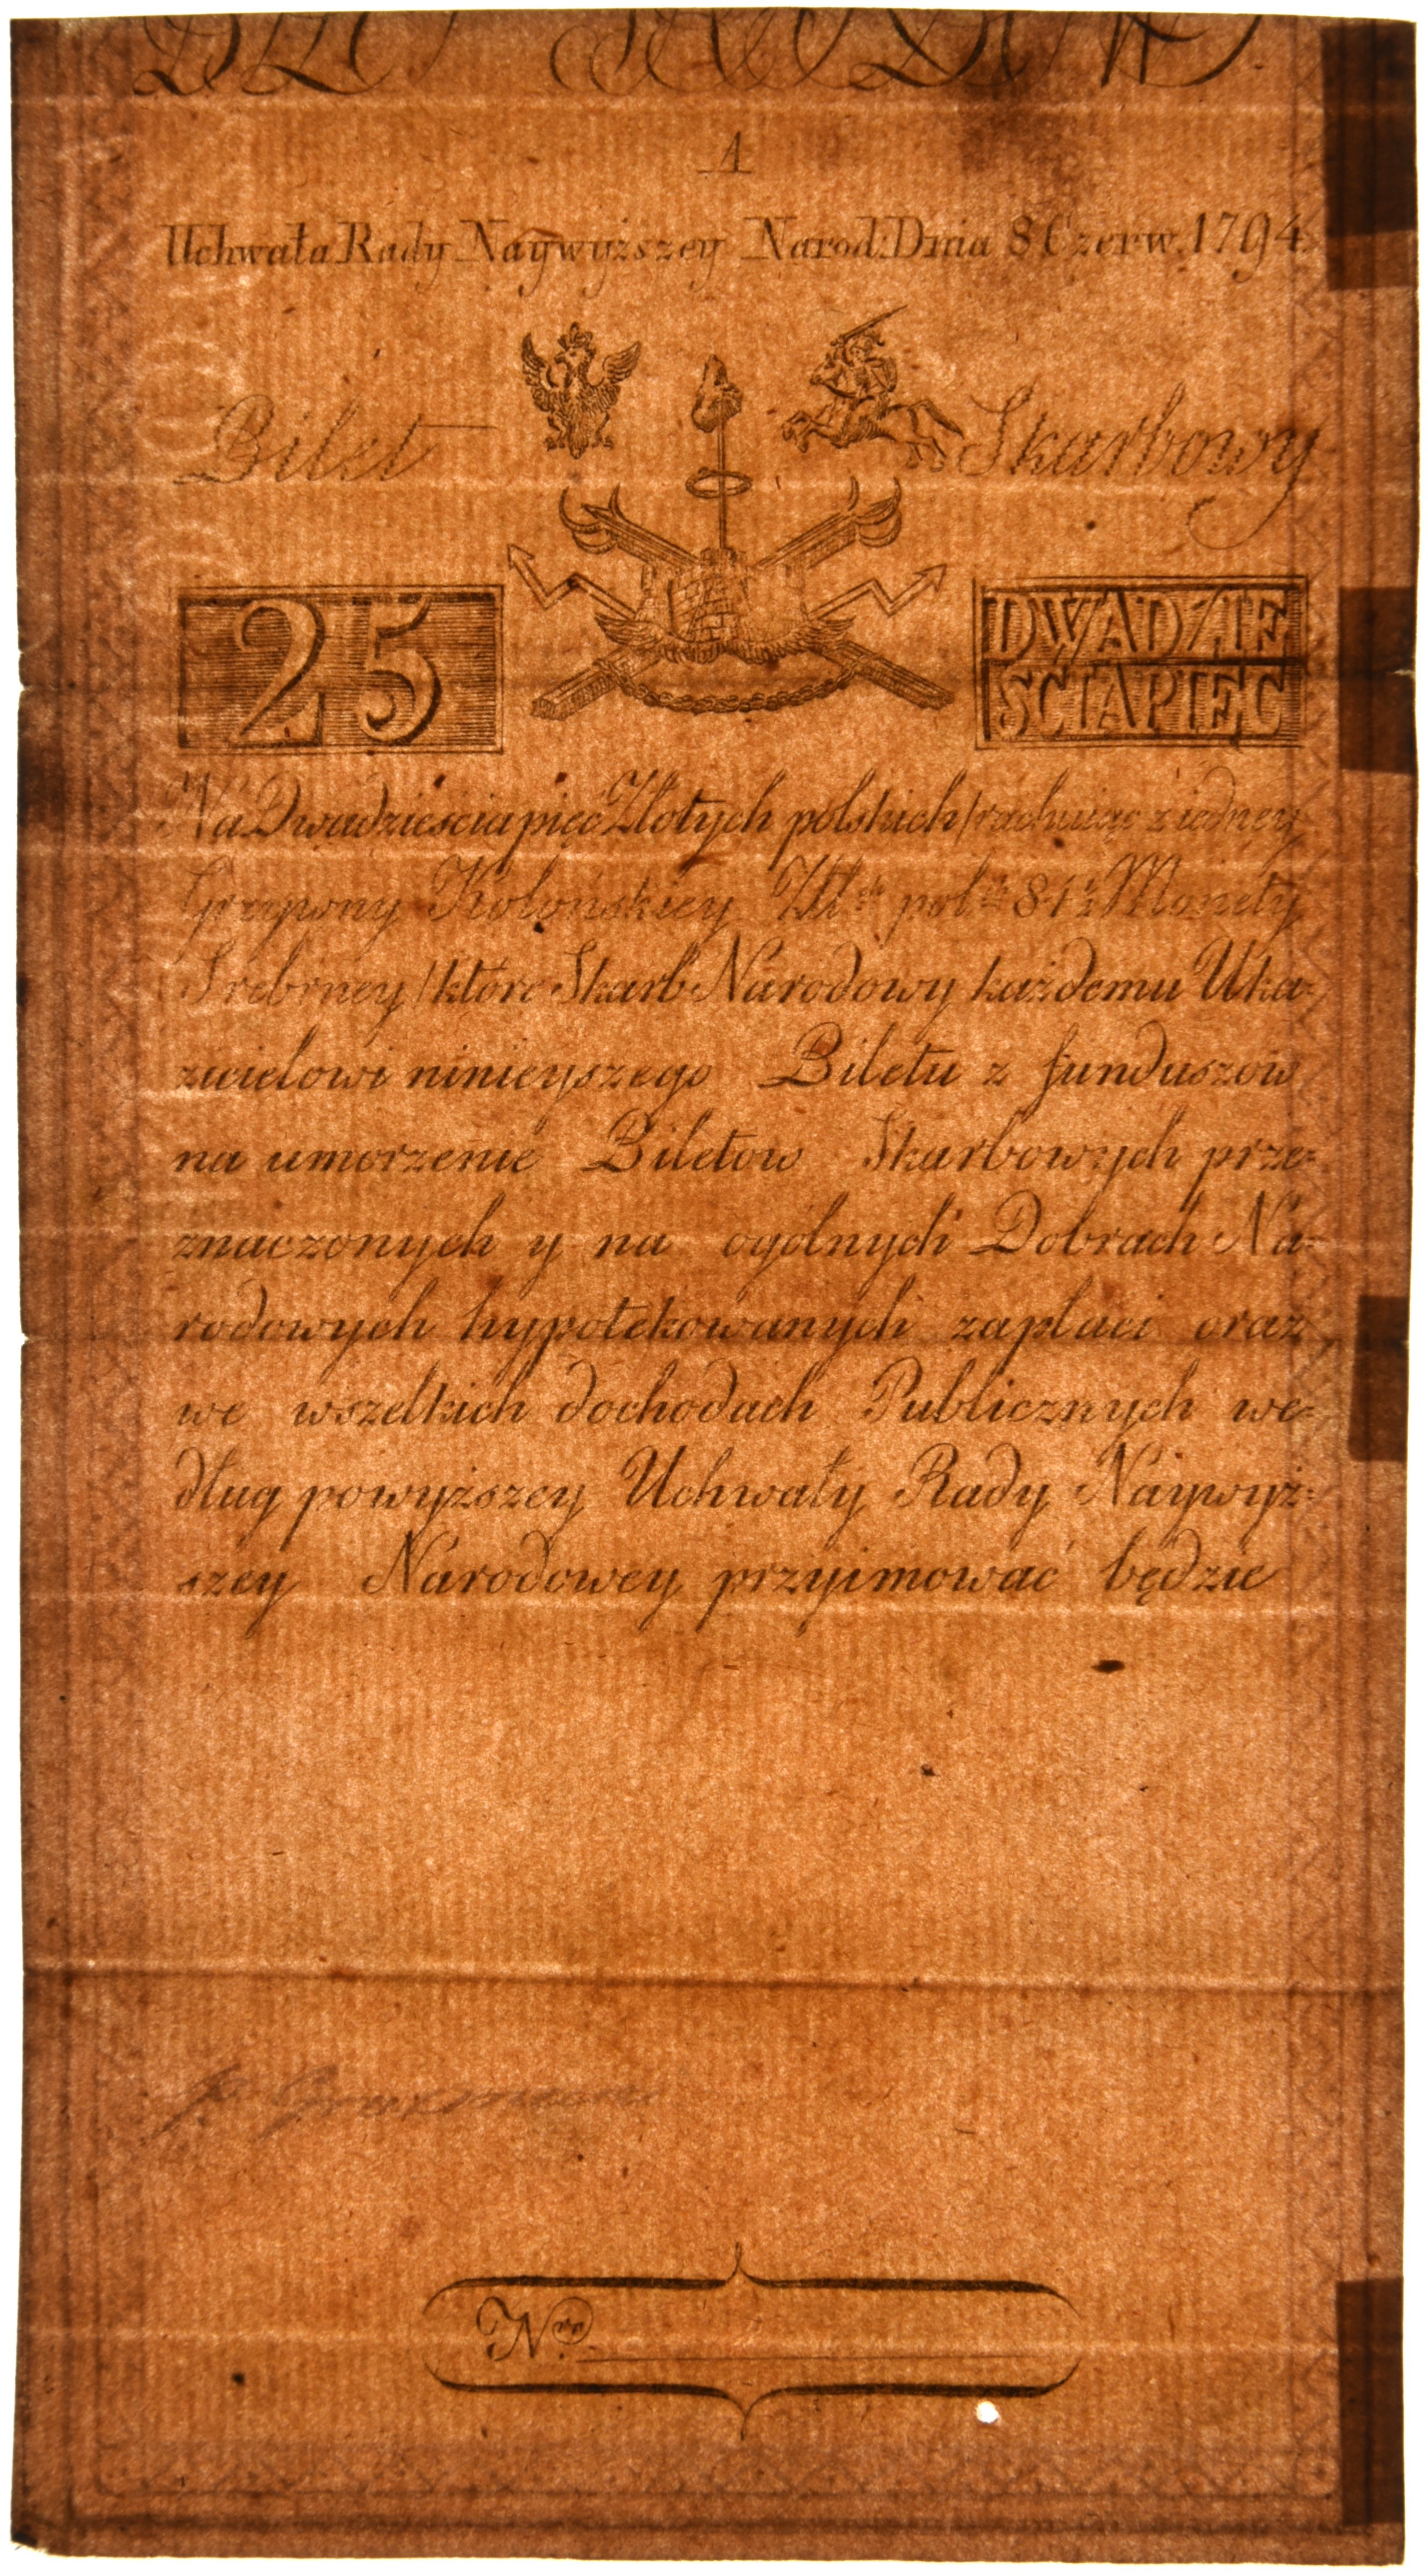 A
Uchwała Rady Naywyższey Narod: Dnia 8 Czerw. 1794.
Bilet Skarbowy
25 DWADZIE
SCIAPIĘC
Na Dwadzieścia pięć Złotych polskich /rachuiąc z iedney
Grzywny Kolońskiey Zł.ch pol.ch 84½ Monety
Srebrney/ które Skarb Narodowy każdemu Uka=
zicielowi ninieyszego Biletu z funduszów
na umorzenie Biletow Skarbowych prze=
znaczonych y na ogólnych Dobrach Na=
rodowych hypotekowanych zapłaci oraz
we wszelkich dochodach Publicznych we=
dług powyższey Uchwały Rady Naywyż=
szey Narodowey przyimować będzie
Nro.